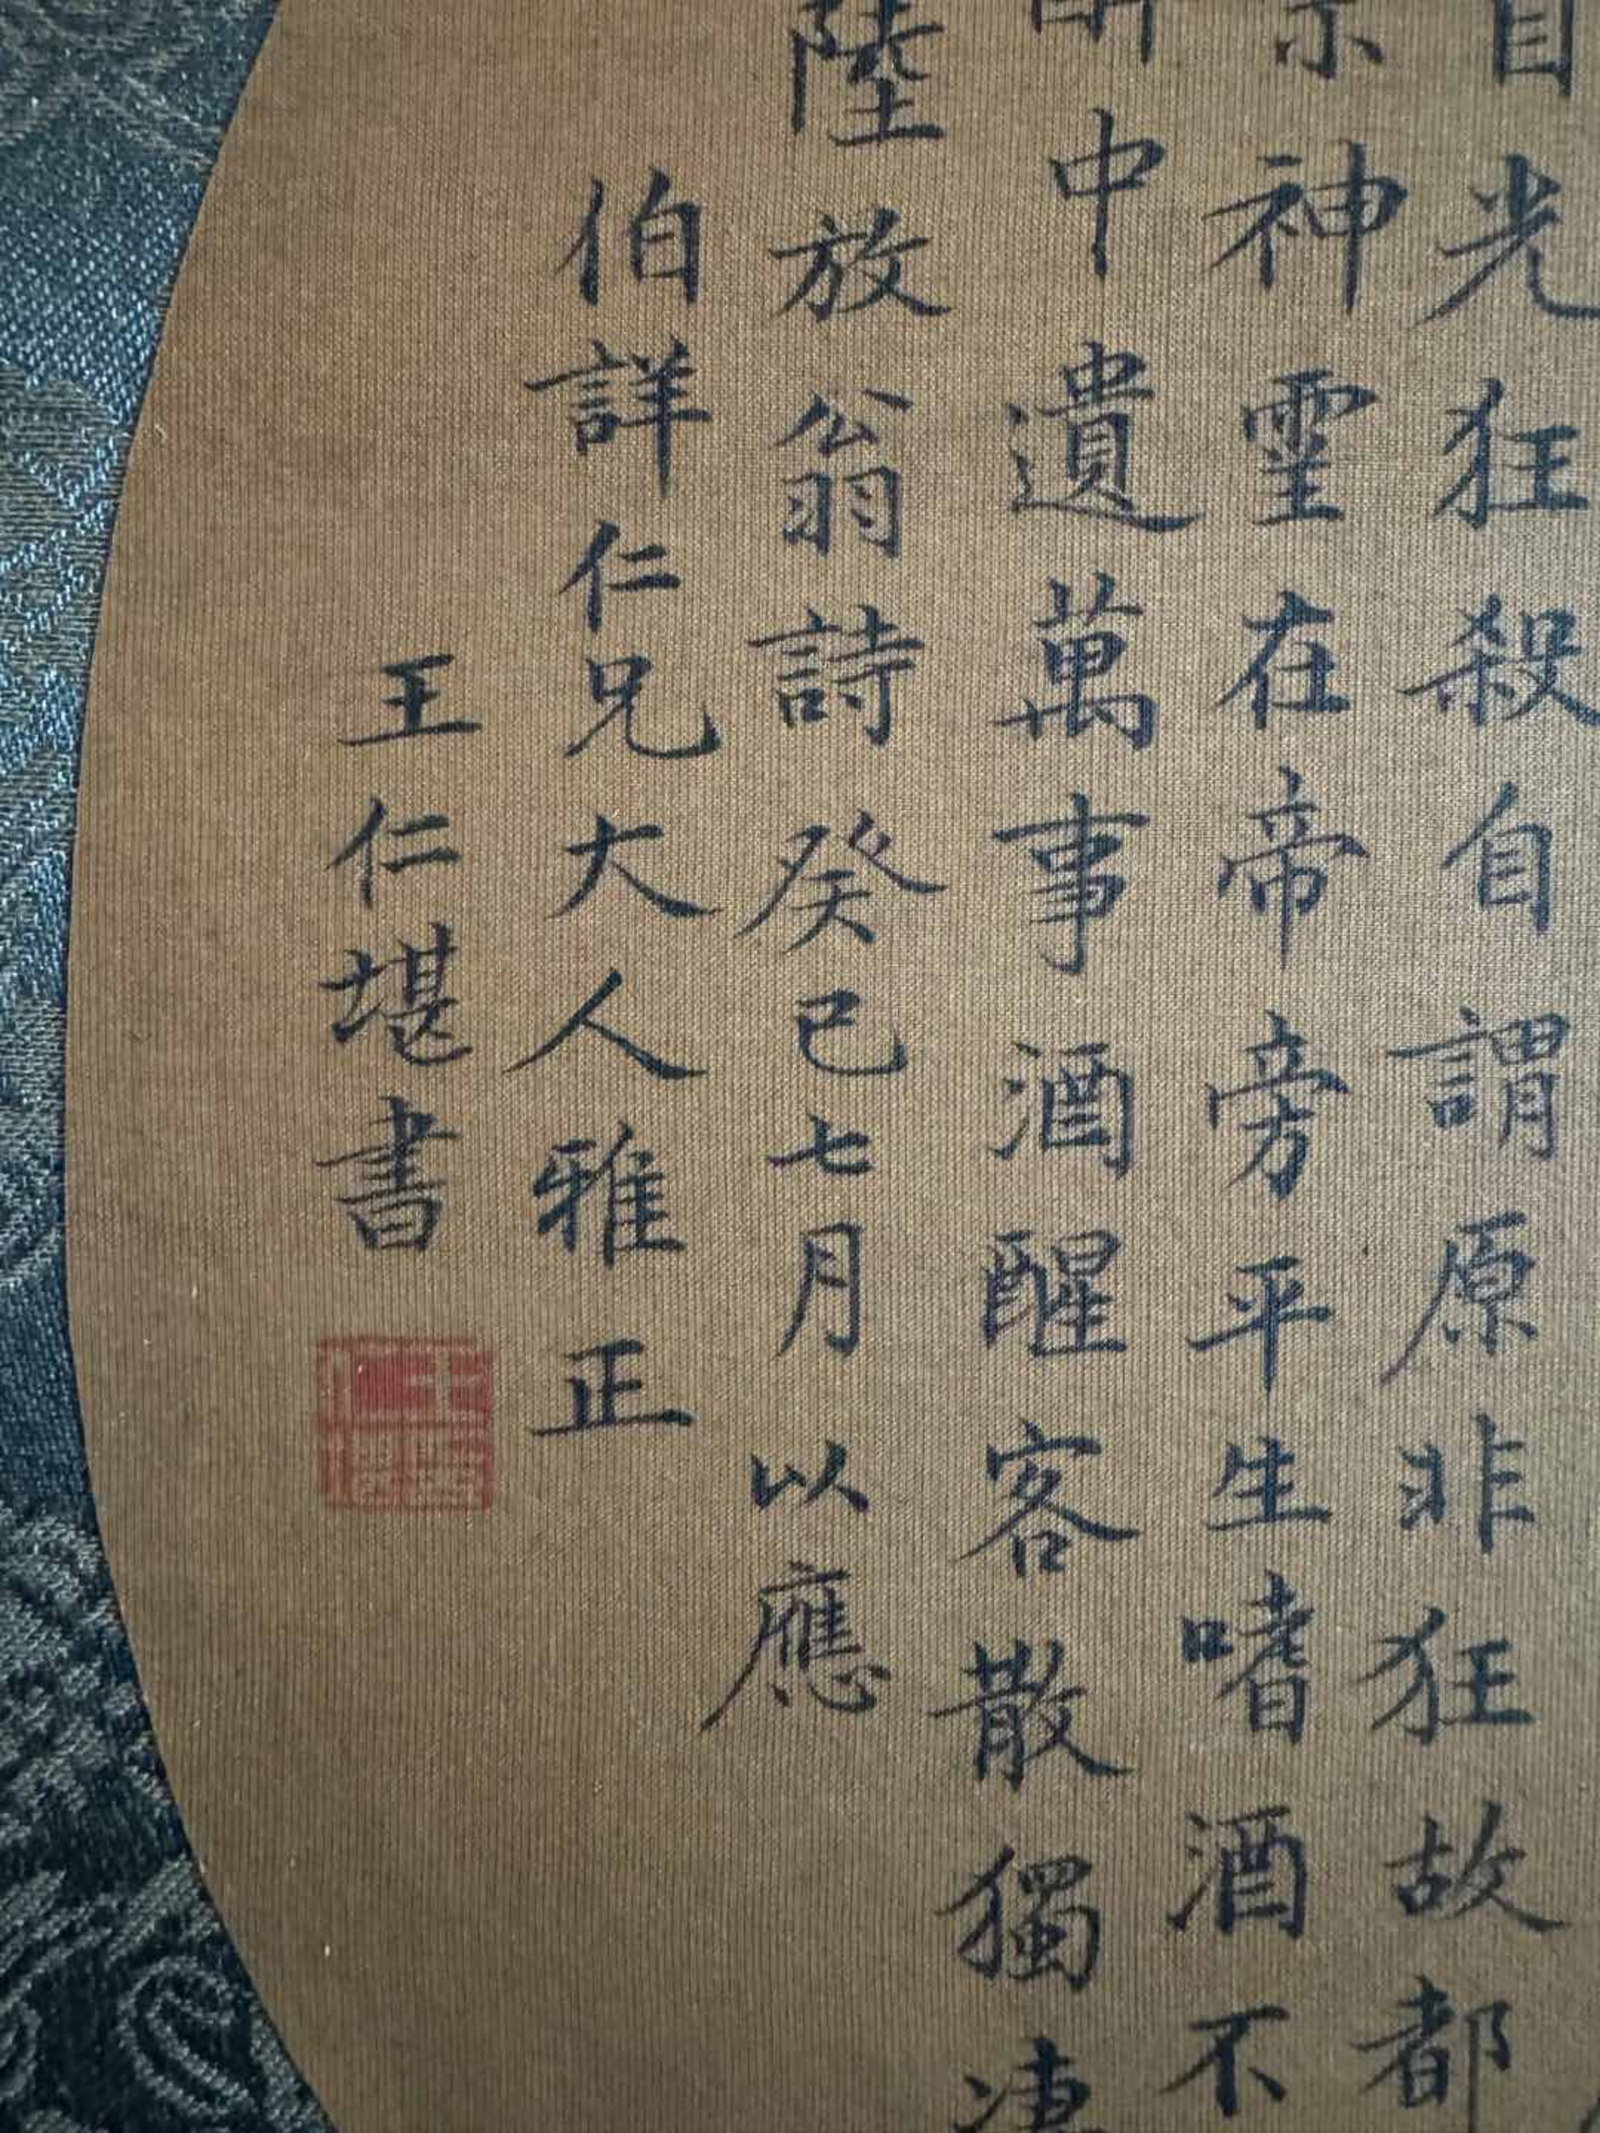 目光狂殺自謂原非狂故都
神靈在帝旁平生嗜酒不
中遺萬事酒醒客散獨凄
陸放翁詩癸巳七月以應
伯詳仁兄大人雅正
王仁堪書